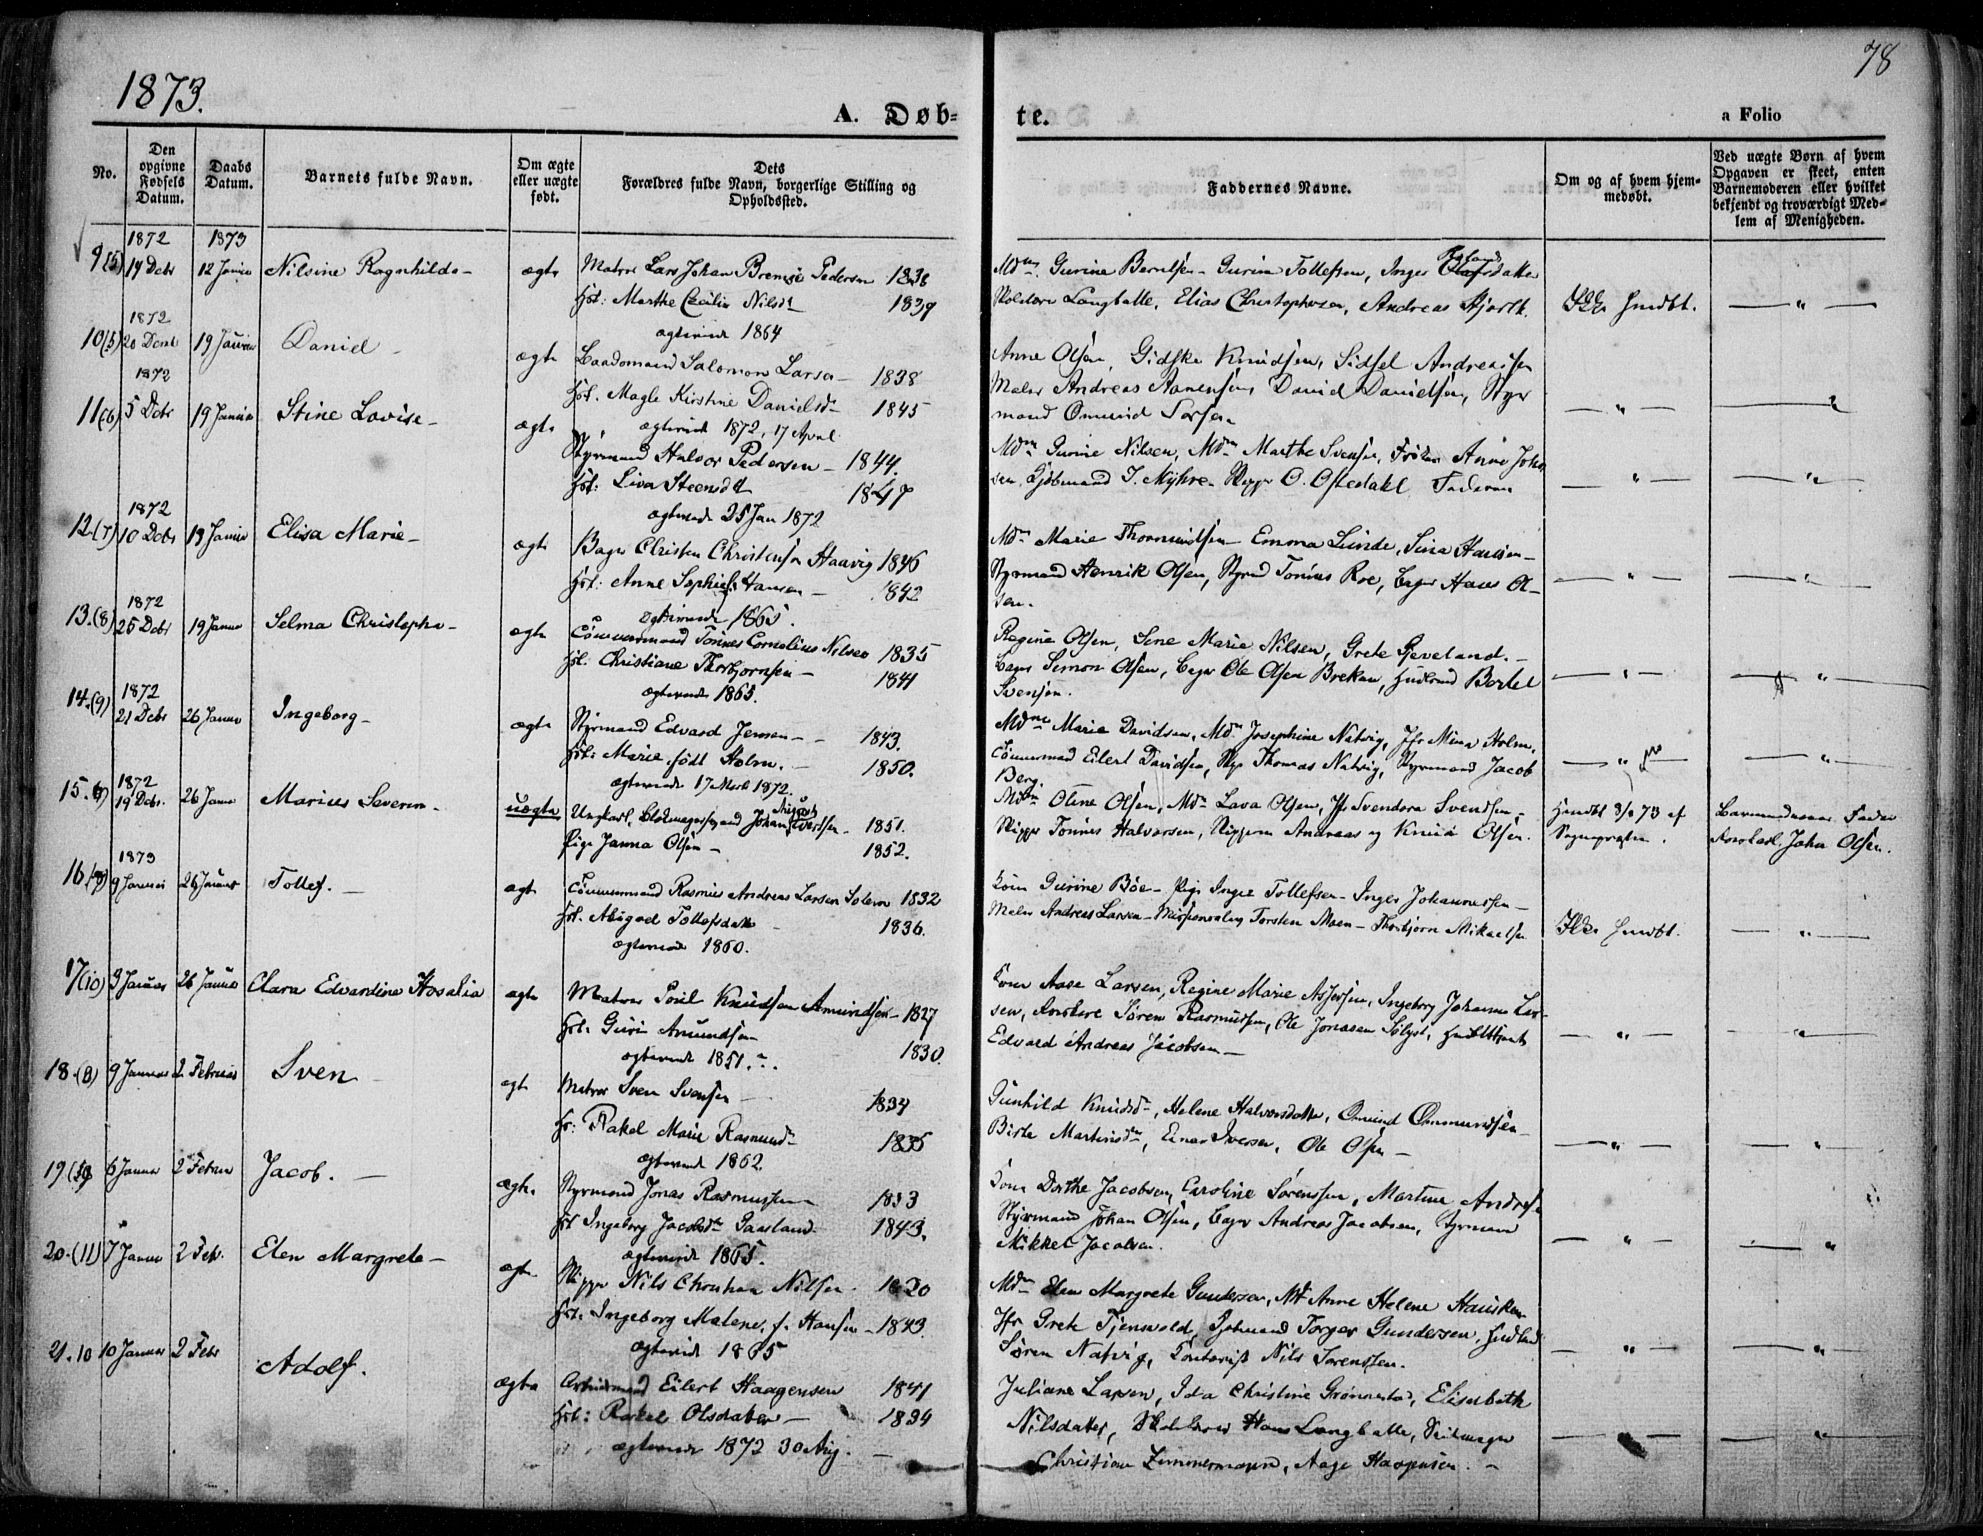 1873.
78
A. Døb-
te.
a Folio
No.
Den opgivne Fødsels Datum.
Daabs Datum.
Barnets fulde Navn.
Om ægte eller uægte født.
Dets Forældres fulde Navn, borgerlige Stilling og Opholdssted.
Faddernes Navne.
Om og af hvem hjemmedøbt.
Ved uægte Børn af hvem Opgaven er skeet, enten Barnemoderen eller hvilket bekjendt og troværdigt Medlem af Menigheden.
1872 1873
9(5) 19 Dcbr 12 Januar Nilsine Ragnhilda - ægte Matros Lars Johan Pedersen 1838
Hst: Marthe Cecilie Nilsdt 1839
ægteviede 1864
Mdm. Gurine Berntsen - Gurina Tollefsen, Inger Olafsdatter
Skolelærer Langballe, Elias Christophersen, Andreas Hjorth.
1872
10(5) 20 Dcmb 19 Januar Daniel - ægte Baadsmand Salomon Larsen - 1838
Hst. Magle Kirstine Danielsdr 1845
ægteviede 1872, 17 April
Anne Olsen, Gidske Knudsen, Sidsel Andreassen
Maler Andreas Aanensen, David Danielsen, Styr
mand Omund
1872
11(6) 5 Dcbr 19 Januar Stine Lovise - ægte
Styrmand Halvor Pedersen - 1844.
Hst: Liva Steensdt 1847
ægteviede 25 Jan 1872
Mdm Gurine Nilsen, Mdm Marthe Svensen, Frøken Anne John
sen, Kjøbmand J. Myhre - Skipper O. Oftedahl, Faderen
1872
12.(7) 10 Dcbr 19 Januar Elisa Marie - ægte Bager Christen Christensen Haavig 1846
Hst: Anne Sophie Hansen - 1842
ægteviede 1865.
Mdm Marie Thormundsen - Emma Lunde, Sina Hansen -
Styrmand Henrik Olsen, Styrmd Tønnes Roe, Bager Hans Ol-
sen.
1872
13.(8) 25 Dcbr 19 Januar Selma Christopha - ægte Tømmermand Tønnes Cornelius Nilsen 1835
Hst. Christiane Thorbjørnsen - 1841
ægteviede 1865.
Regine Olsen, Sene Marie Nilsen, Grete Gjeveland. -
Bager Simon Olsen, Bager Ole Olsen Brekan, Bertel
Svensen.
1872
14.(9) 21 Dcbr 26 Januar Ingeborg - ægte Styrmand Edvard Jensen - - 1843.
Hst: Marie født Holm. - 1850.
ægteviede 17 Marts 1872.
Mdme Marie Davidsen, Mdm Josephine Natvig, Jfr Mina Holm.
Tømmermand Eilert Davidsen, Skip Thomas Natvig, Styrmand Jacob
Berg.
1872
15. 19 Dcbr. 26 Januar Marius Severin - uægte Ungkarl, Johan - 1851.
Pige Janna Olsen - 1852.
Mdm Oline Olsen, Mdm Lava Olsen, Jfr Svendora Svendsen,
Skipper Tønnes Halvorsen, Skipperne Andreas og Knud Olsen.
Hmdbt 3/1 73 af
Sognepræsten.
Barnemoderens Fader
Johan Olsen.
1873
16. 9 Januar 26 Januar Tollef. - ægte Tømmermand Rasmus Andreas Larsen 1832
Hst. Abigael Tollefsdatter - 1836.
ægteviede 1860.
Kone Gurine Bøe - Pige Inger Tollefsen - Inger Johannessen -
Maler Andreas Larsen - Torsten Moen - Thorbjørn Mikaelsen
17(10) 3 Januar 26 Januar Clara Edvardine Hosalia ægte Matros Poul Knudsen Amundsen - 1827
Hst: Guri Amundsen 1830.
ægteviede 1851.
Kone Aase Larsen, Regine Marie Asjersen, Ingeborg Johanne Lar-
sen, Søren Rasmussen, Ole Jonasen Sølyst,
Edvard Andreas Jacobsen -
18.(8) 9 Januar 2 Februar Sven - ægte Matros Sven Svensen - 1834
Hst: Rakel Marie Rasmusdr 1835
ægteviede 1862.
Gunhild Knudsdr, Helene Halvorsdatter, Omund Ommundsen -
Birthe Martinsdr, Einar Iversen, Ole Olsen -
19 6 Januar 2 Februar Jacob. - ægte. Styrmand Jonas Rasmussen 1833
Hst Ingeborg Jacobsdr Gaasland 1843.
ægteviede 1865.
Kone Dorthe Jacobsen, Caroline Sørenssen, Martine
Styrmand Johan Olsen, Bager Andreas Jacobsen, Styrmand
Mikkel Jacobsen.
20.(11) 7 Januar 2 Febr. Elen Margrete - ægte Skipper Nils Christian Nilsen 1820
Hst. Ingeborg Malene, f. Hansen - 1843.
ægteviede 1865
Mdm Elen Margrete Gundersen, Md Anne Helene Hausken
Jfr Grete Tjensvold, Kjøbmand Torger Gundersen,
Søren Natvig, Kontorist Nils Sørenssen.
21.10 10 Januar 2 Febr Adolf. ægte Arbeidsmand Eilert Haagensen 1841
Hst: Rakel Olsdatter - 1834
ægteviede 1872 30 Aug. -
Juliane Larsen, Ida Christine Grønnestad, Elisabeth
Nilsdatter, Skolelærer Hans Langballe,
Christian Zimmermann, Aage Haagensen. -